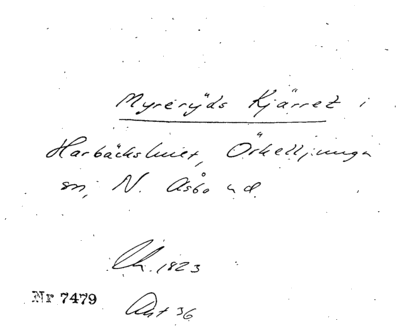 Myreryds Kjärret i
Harbäckshult, Örkelljunga
sn, N. Åsbo hd.
Ch. 1823
Nr 7479
Akt 36